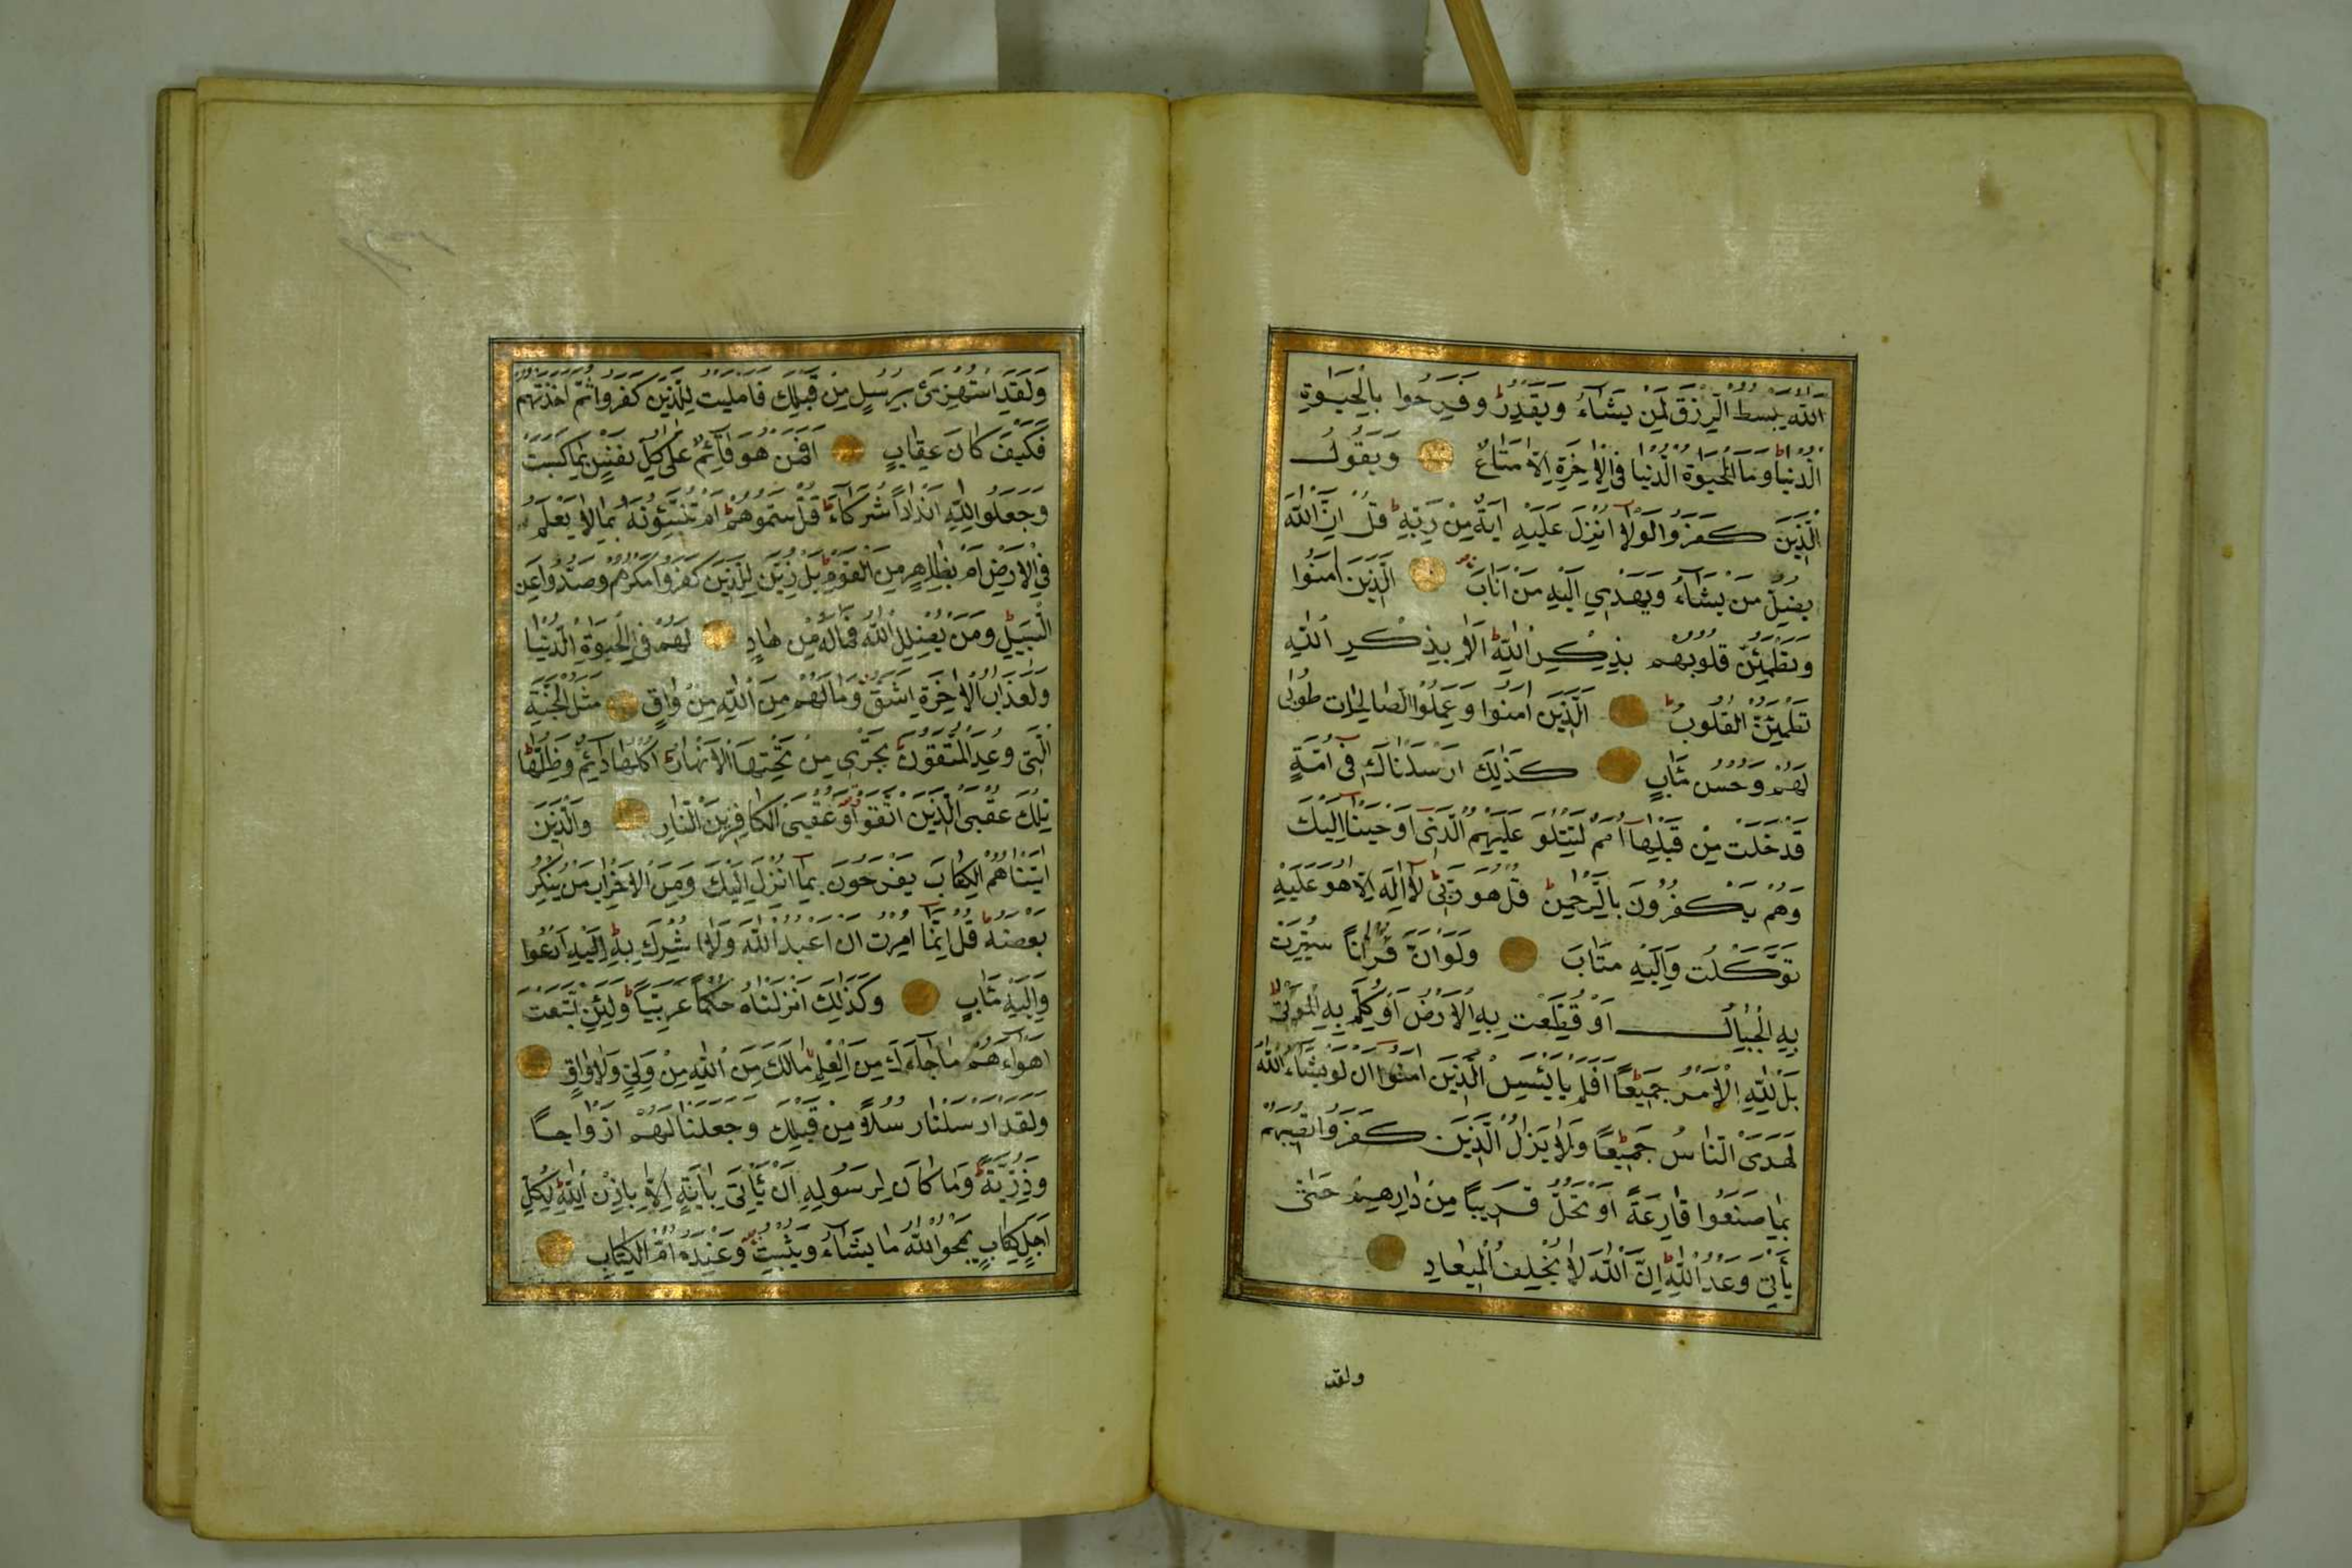 اَللّٰهُ يَبْسُطُ الرِّزْقَ لِمَنْ يَشَٓاءُ وَيَقْدِرُ ط وَفَرِحُوا بِالْحَيٰوةِ
الدُّنْيَا وَمَا الْحَيٰوةُ الدُّنْيَا فِي الْاٰخِرَةِ اِلَّا مَتَاعٌ وَيَقُولُ
الَّذِينَ كَفَرُوا لَوْلَٓا اُنْزِلَ عَلَيْهِ اٰيَةٌ مِنْ رَبِّهِ ط قُلْ اِنَّ اللّٰهَ
يُضِلُّ مَنْ يَشَٓاءُ وَيَهْدِي اِلَيْهِ مَنْ اَنَابَ اَلَّذِينَ اٰمَنُوا
وَتَطْمَئِنُّ قُلُوبُهُمْ بِذِكْرِ اللّٰهِ ط اَلَا بِذِكْرِ اللّٰهِ
تَطْمَئِنُّ الْقُلُوبُ ط اَلَّذِينَ اٰمَنُوا وَعَمِلُوا الصَّالِحَاتِ طُوبٰى
لَهُمْ وَحُسْنُ مَاٰبٍ كَذٰلِكَ اَرْسَلْنَاكَ فِٓى اُمَّةٍ
قَدْ خَلَتْ مِنْ قَبْلِهَٓا اُمَمٌ لِتَتْلُوَ عَلَيْهِمُ الَّذِٓى اَوْحَيْنَٓا اِلَيْكَ
وَهُمْ يَكْفُرُونَ بِالرَّحْمٰنِ ط قُلْ هُوَ رَبِّى لَٓا اِلٰهَ اِلَّا هُوَ عَلَيْهِ
تَوَكَّلْتُ وَاِلَيْهِ مَتَابِ وَلَوْ اَنَّ قُرْاٰنًا سُيِّرَتْ
بِهِ الْجِبَالُ اَوْ قُطِّعَتْ بِهِ الْاَرْضُ اَوْ كُلِّمَ بِهِ الْمَوْتٰى
بَلْ لِلّٰهِ الْاَمْرُ جَمِيعًا ط اَفَلَمْ يَايْـَٔسِ الَّذِينَ اٰمَنُٓوا اَنْ لَوْ يَشَٓاءُ اللّٰهُ
لَهَدَى النَّاسَ جَمِيعًا ط وَلَا يَزَالُ الَّذِينَ كَفَرُوا تُصِيبُهُمْ
بِمَا صَنَعُوا قَارِعَةٌ اَوْ تَحُلُّ قَرِيبًا مِنْ دَارِهِمْ حَتّٰى
يَأْتِيَ وَعْدُ اللّٰهِ ط اِنَّ اللّٰهَ لَا يُخْلِفُ الْمِيعَادَ
ولقد
وَلَقَدِ اسْتُهْزِئَ بِرُسُلٍ مِنْ قَبْلِكَ فَاَمْلَيْتُ لِلَّذِينَ كَفَرُوا ثُمَّ اَخَذْتُهُمْ
فَكَيْفَ كَانَ عِقَابِ اَفَمَنْ هُوَ قَٓائِمٌ عَلٰى كُلِّ نَفْسٍ بِمَا كَسَبَتْ
وَجَعَلُوا لِلّٰهِ اَنْدَادًا شُرَكَٓاءَ ط قُلْ سَمُّوهُمْ ط اَمْ تُنَبِّؤُنَهُ بِمَا لَا يَعْلَمُ
فِي الْاَرْضِ اَمْ بِظَاهِرٍ مِنَ الْقَوْلِ ط بَلْ زُيِّنَ لِلَّذِينَ كَفَرُوا مَكْرُهُمْ وَصُدُّوا عَنِ
السَّبِيلِ ط وَمَنْ يُضْلِلِ اللّٰهُ فَمَا لَهُ مِنْ هَادٍ لَهُمْ فِي الْحَيٰوةِ الدُّنْيَا
وَلَعَذَابُ الْاٰخِرَةِ اَشَقُّ وَمَا لَهُمْ مِنَ اللّٰهِ مِنْ وَاقٍ مَثَلُ الْجَنَّةِ
الَّتِي وُعِدَ الْمُتَّقُونَ ط تَجْرِي مِنْ تَحْتِهَا الْاَنْهَارُ ط اُكُلُهَا دَٓائِمٌ وَظِلُّهَا ط
تِلْكَ عُقْبَى الَّذِينَ اتَّقَوْا وَعُقْبَى الْكَافِرِينَ النَّارُ وَالَّذِينَ
اٰتَيْنَاهُمُ الْكِتَابَ يَفْرَحُونَ بِمَٓا اُنْزِلَ اِلَيْكَ وَمِنَ الْاَحْزَابِ مَنْ يُنْكِرُ
بَعْضَهُ ط قُلْ اِنَّمَٓا اُمِرْتُ اَنْ اَعْبُدَ اللّٰهَ وَلَٓا اُشْرِكَ بِهِ ط اِلَيْهِ اَدْعُوا
وَاِلَيْهِ مَاٰبِ وَكَذٰلِكَ اَنْزَلْنَاهُ حُكْمًا عَرَبِيًّا ط وَلَئِنِ اتَّبَعْتَ
اَهْوَٓاءَهُمْ مَا جَٓاءَكَ مِنَ الْعِلْمِ مَا لَكَ مِنَ اللّٰهِ مِنْ وَلِيٍّ وَلَا وَاقٍ
وَلَقَدْ اَرْسَلْنَا رُسُلًا مِنْ قَبْلِكَ وَجَعَلْنَا لَهُمْ اَزْوَاجًا
وَذُرِّيَّةً ط وَمَا كَانَ لِرَسُولٍ اَنْ يَأْتِيَ بِاٰيَةٍ اِلَّا بِاِذْنِ اللّٰهِ ط لِكُلِّ
اَجَلٍ كِتَابٌ يَمْحُوا اللّٰهُ مَا يَشَٓاءُ وَيُثْبِتُ وَعِنْدَهُ اُمُّ الْكِتَابِ